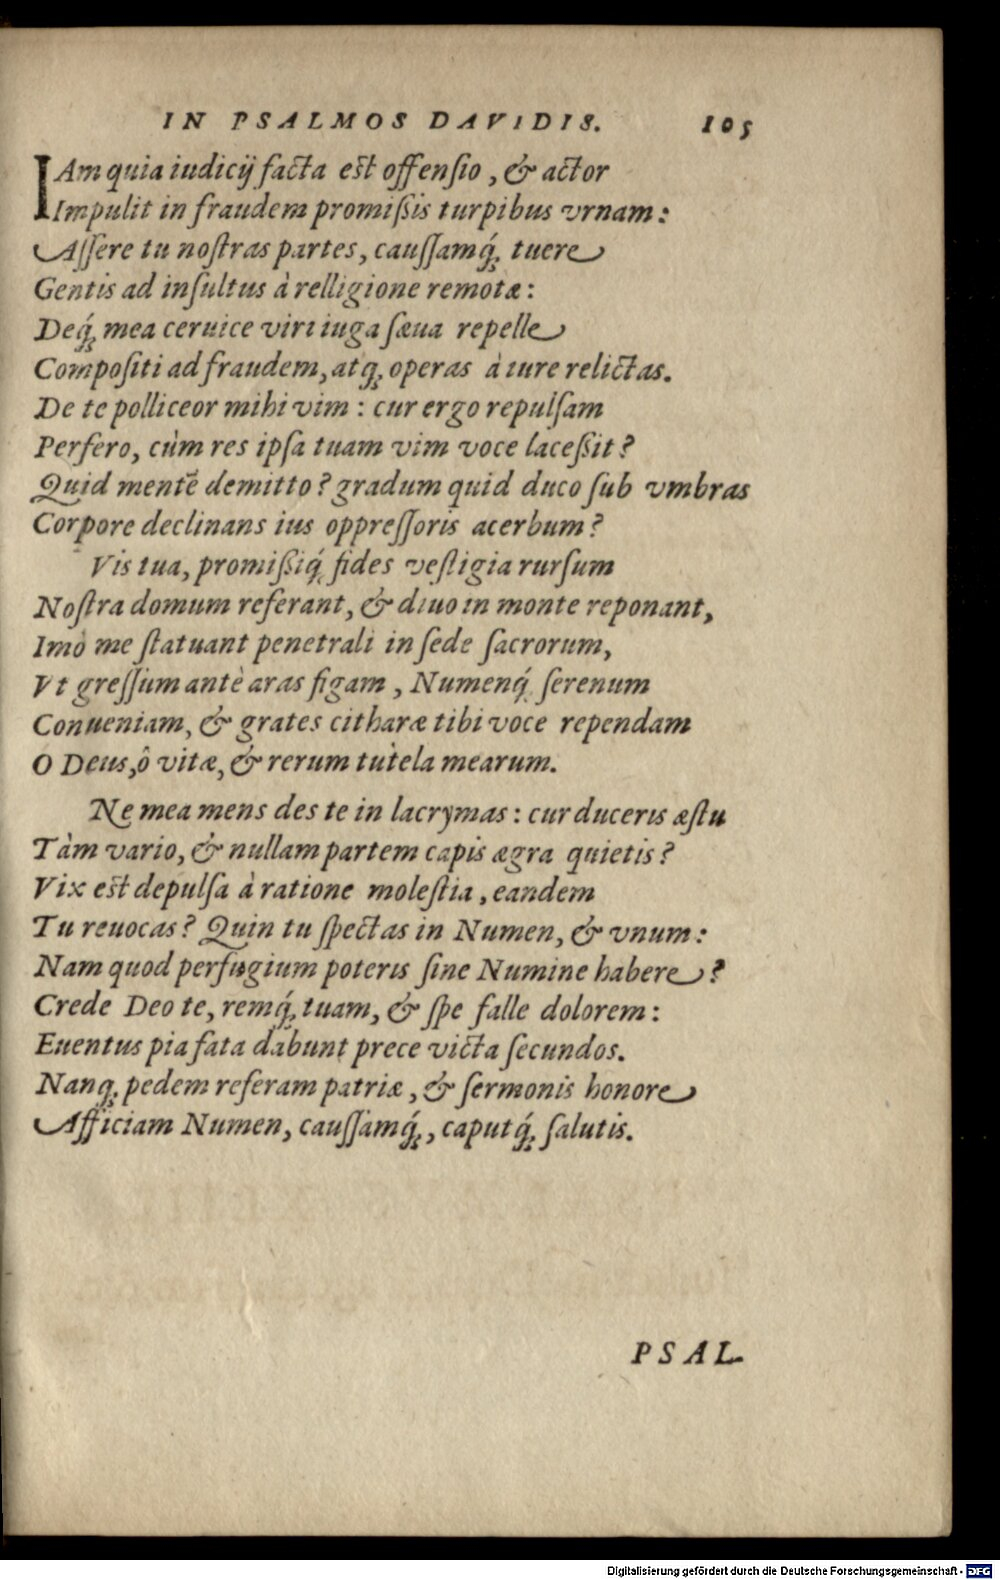 IN PSALMOS DAVIDIS. 105
IAm quia iudicij facta est offensio, & actor
Impulit in fraudem promißis turpibus vrnam:
Aſſere tu noſtras partes, cauſſamq́; tuere
Gentis ad inſultus à relligione remotæ:
Deq́; mea ceruice viri iuga ſæua repelle
Compoſiti ad fraudem, atq; operas à iure relictas.
De te polliceor mihi vim: cur ergo repulſam
Perfero, cùm res ipſa tuam vim voce laceßit?
Quid mentē demitto? gradum quid duco ſub vmbras
Corpore declinans ius oppreſſoris acerbum?
Vis tua, promißiq́; fides veſtigia rurſum
Noſtra domum referant, & diuo in monte reponant,
Imò me ſtatuant penetrali in ſede ſacrorum,
Vt greſſum antè aras figam, Numenq́; ſerenum
Conueniam, & grates citharæ tibi voce rependam
O Deus, ô vitæ, & rerum tutela mearum.
Ne mea mens des te in lacrymas: cur duceris æſtu
Tàm vario, & nullam partem capis ægra quietis?
Vix est depulſa à ratione moleſtia, eandem
Tu reuocas? Quin tu ſpectas in Numen, & vnum:
Nam quod perfugium poteris ſine Numine habere?
Crede Deo te, remq́; tuam, & ſpe falle dolorem:
Euentus pia fata dabunt prece victa ſecundos.
Nanq; pedem referam patriæ, & ſermonis honore
Afficiam Numen, cauſſamq́;, caputq́; ſalutis.
PSAL.
Digitalisierung gefördert durch die Deutsche Forschungsgemeinschaft - DFG